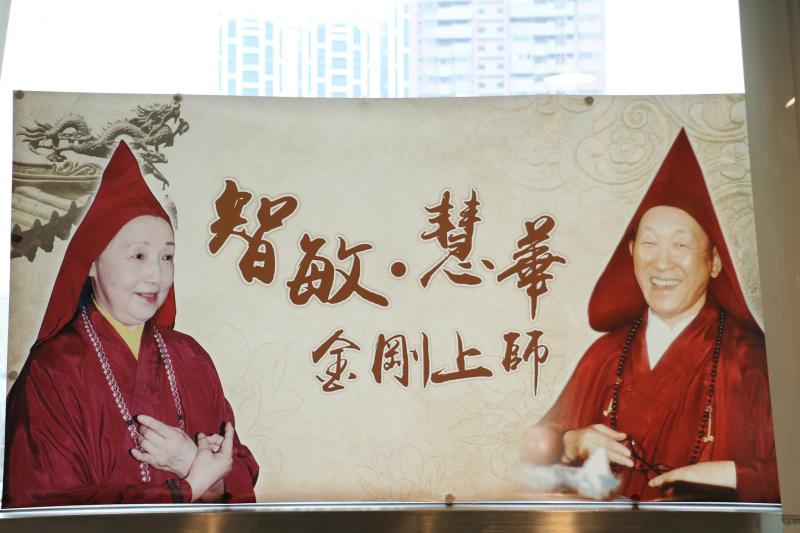 智敏·慧華
金剛上師